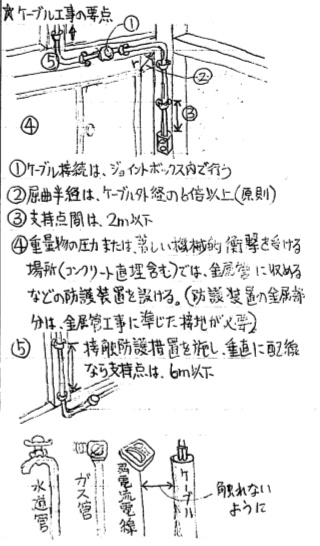 ☆ケーブル工事の要点
①
⑤
r
②
③
④
①ケーブル接続は、ジョイントボックス内で行う
②屈曲半径は、ケーブル外径の6倍以上(原則)
③支持点間は、2m以下
④重量物の圧力または、著しい機械的衝撃を受ける
場所(コンクリート直埋含む)では、金属管に収める
などの防護装置を設ける。(防護装置の金属部
分は、金属管工事に準じた接地が必要)
⑤接触防護措置を施し、垂直に配線
なら支持点は、6m以下
水道管
ガス管
弱電流電線
ケーブル
触れない
ように